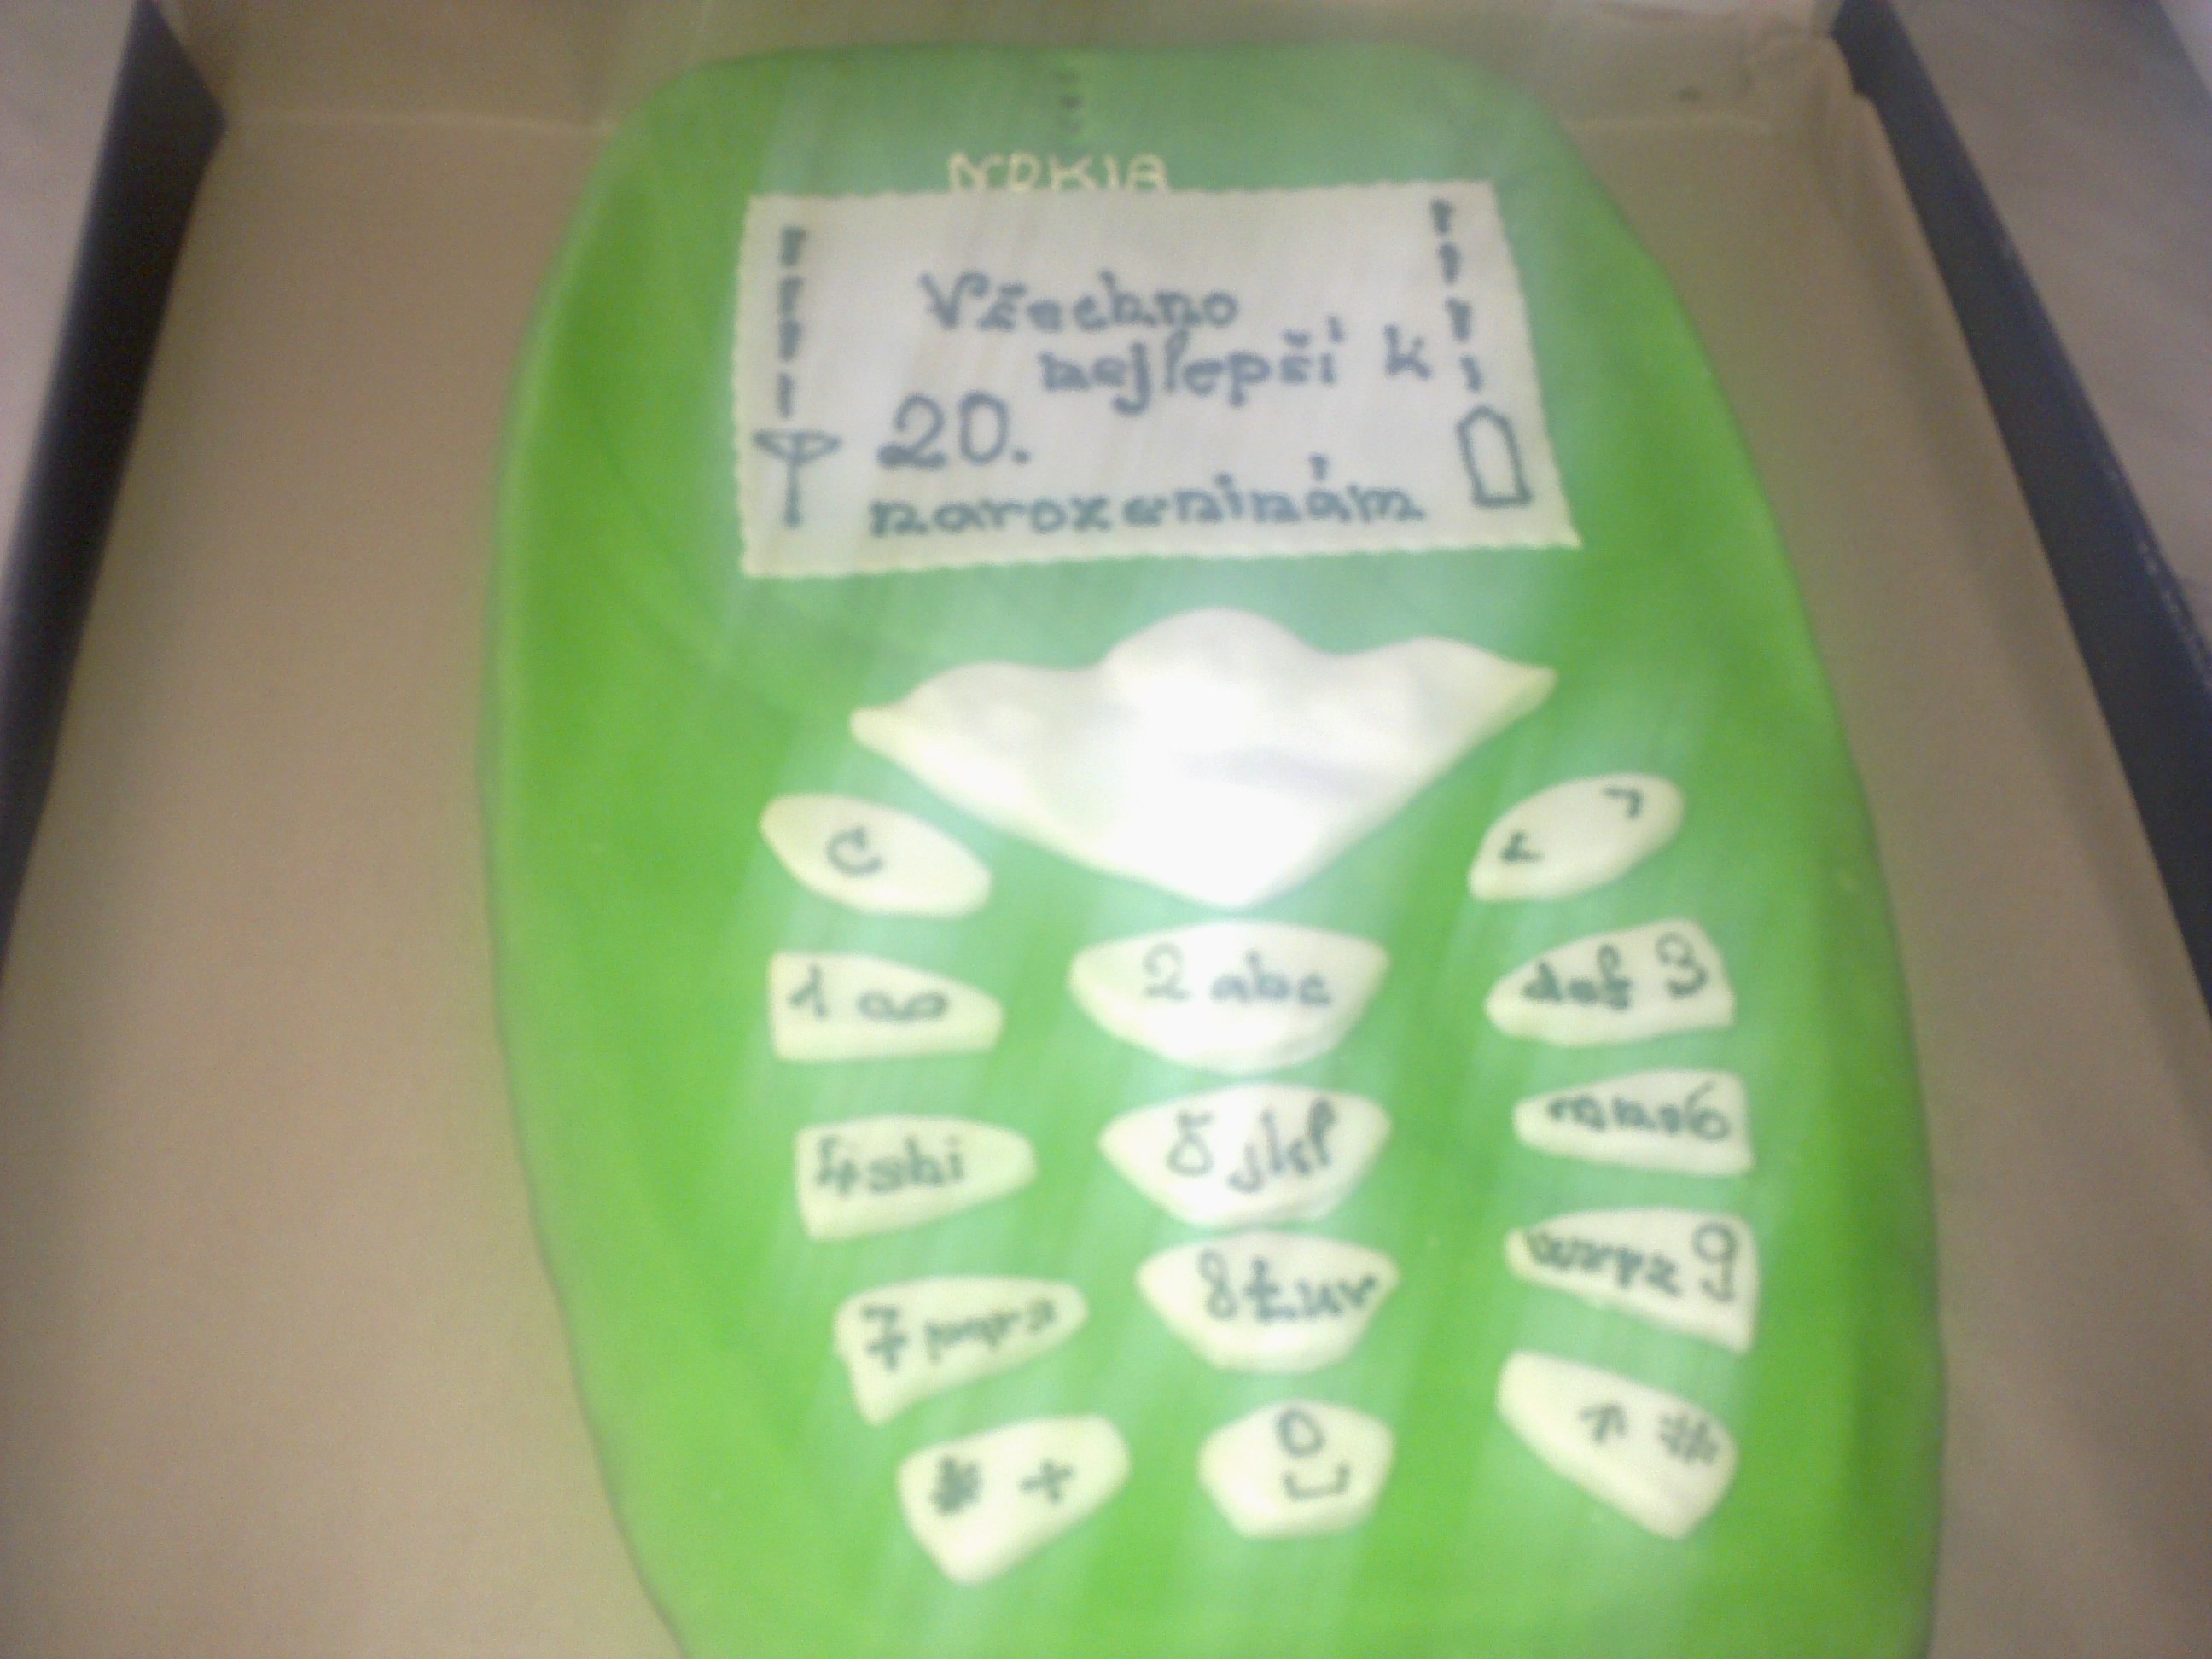 NOKIA
Všechno
nejlepší k
20.
narozeninám
C
1 ∞
2 abc
def 3
4 ghi
5 jkl
mno6
7 pqrs
8 tuv
wxyz 9
* +
0
↑ #